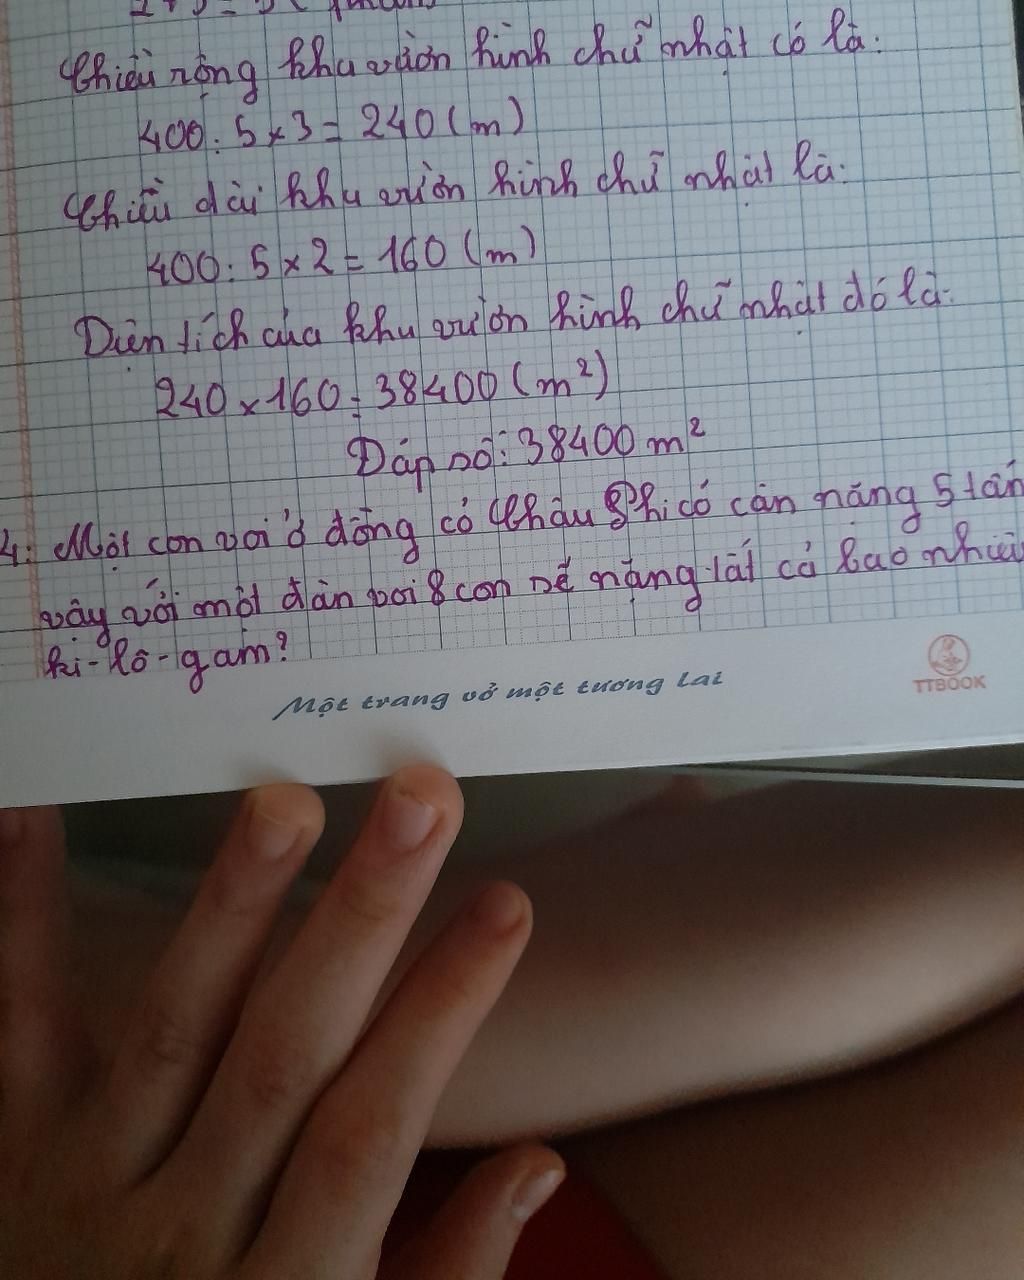 2+3=5 (phần)
Chiều rộng khu vườn hình chữ nhật có là:
400 : 5 x 3 = 240 (m)
Chiều dài khu vườn hình chữ nhật là:
400 : 5 x 2 = 160 (m)
Diện tích của khu vườn hình chữ nhật đó là:
240 x 160 = 38400 (m²)
Đáp số: 38400 m²
4. Một con voi ở đồng cỏ Châu Phi có cân nặng 5 tấn
vậy với một đàn voi 8 con sẽ nặng tất cả bao nhiêu
ki-lô-gam?
Một trang vở một tương lai
TTBOOK